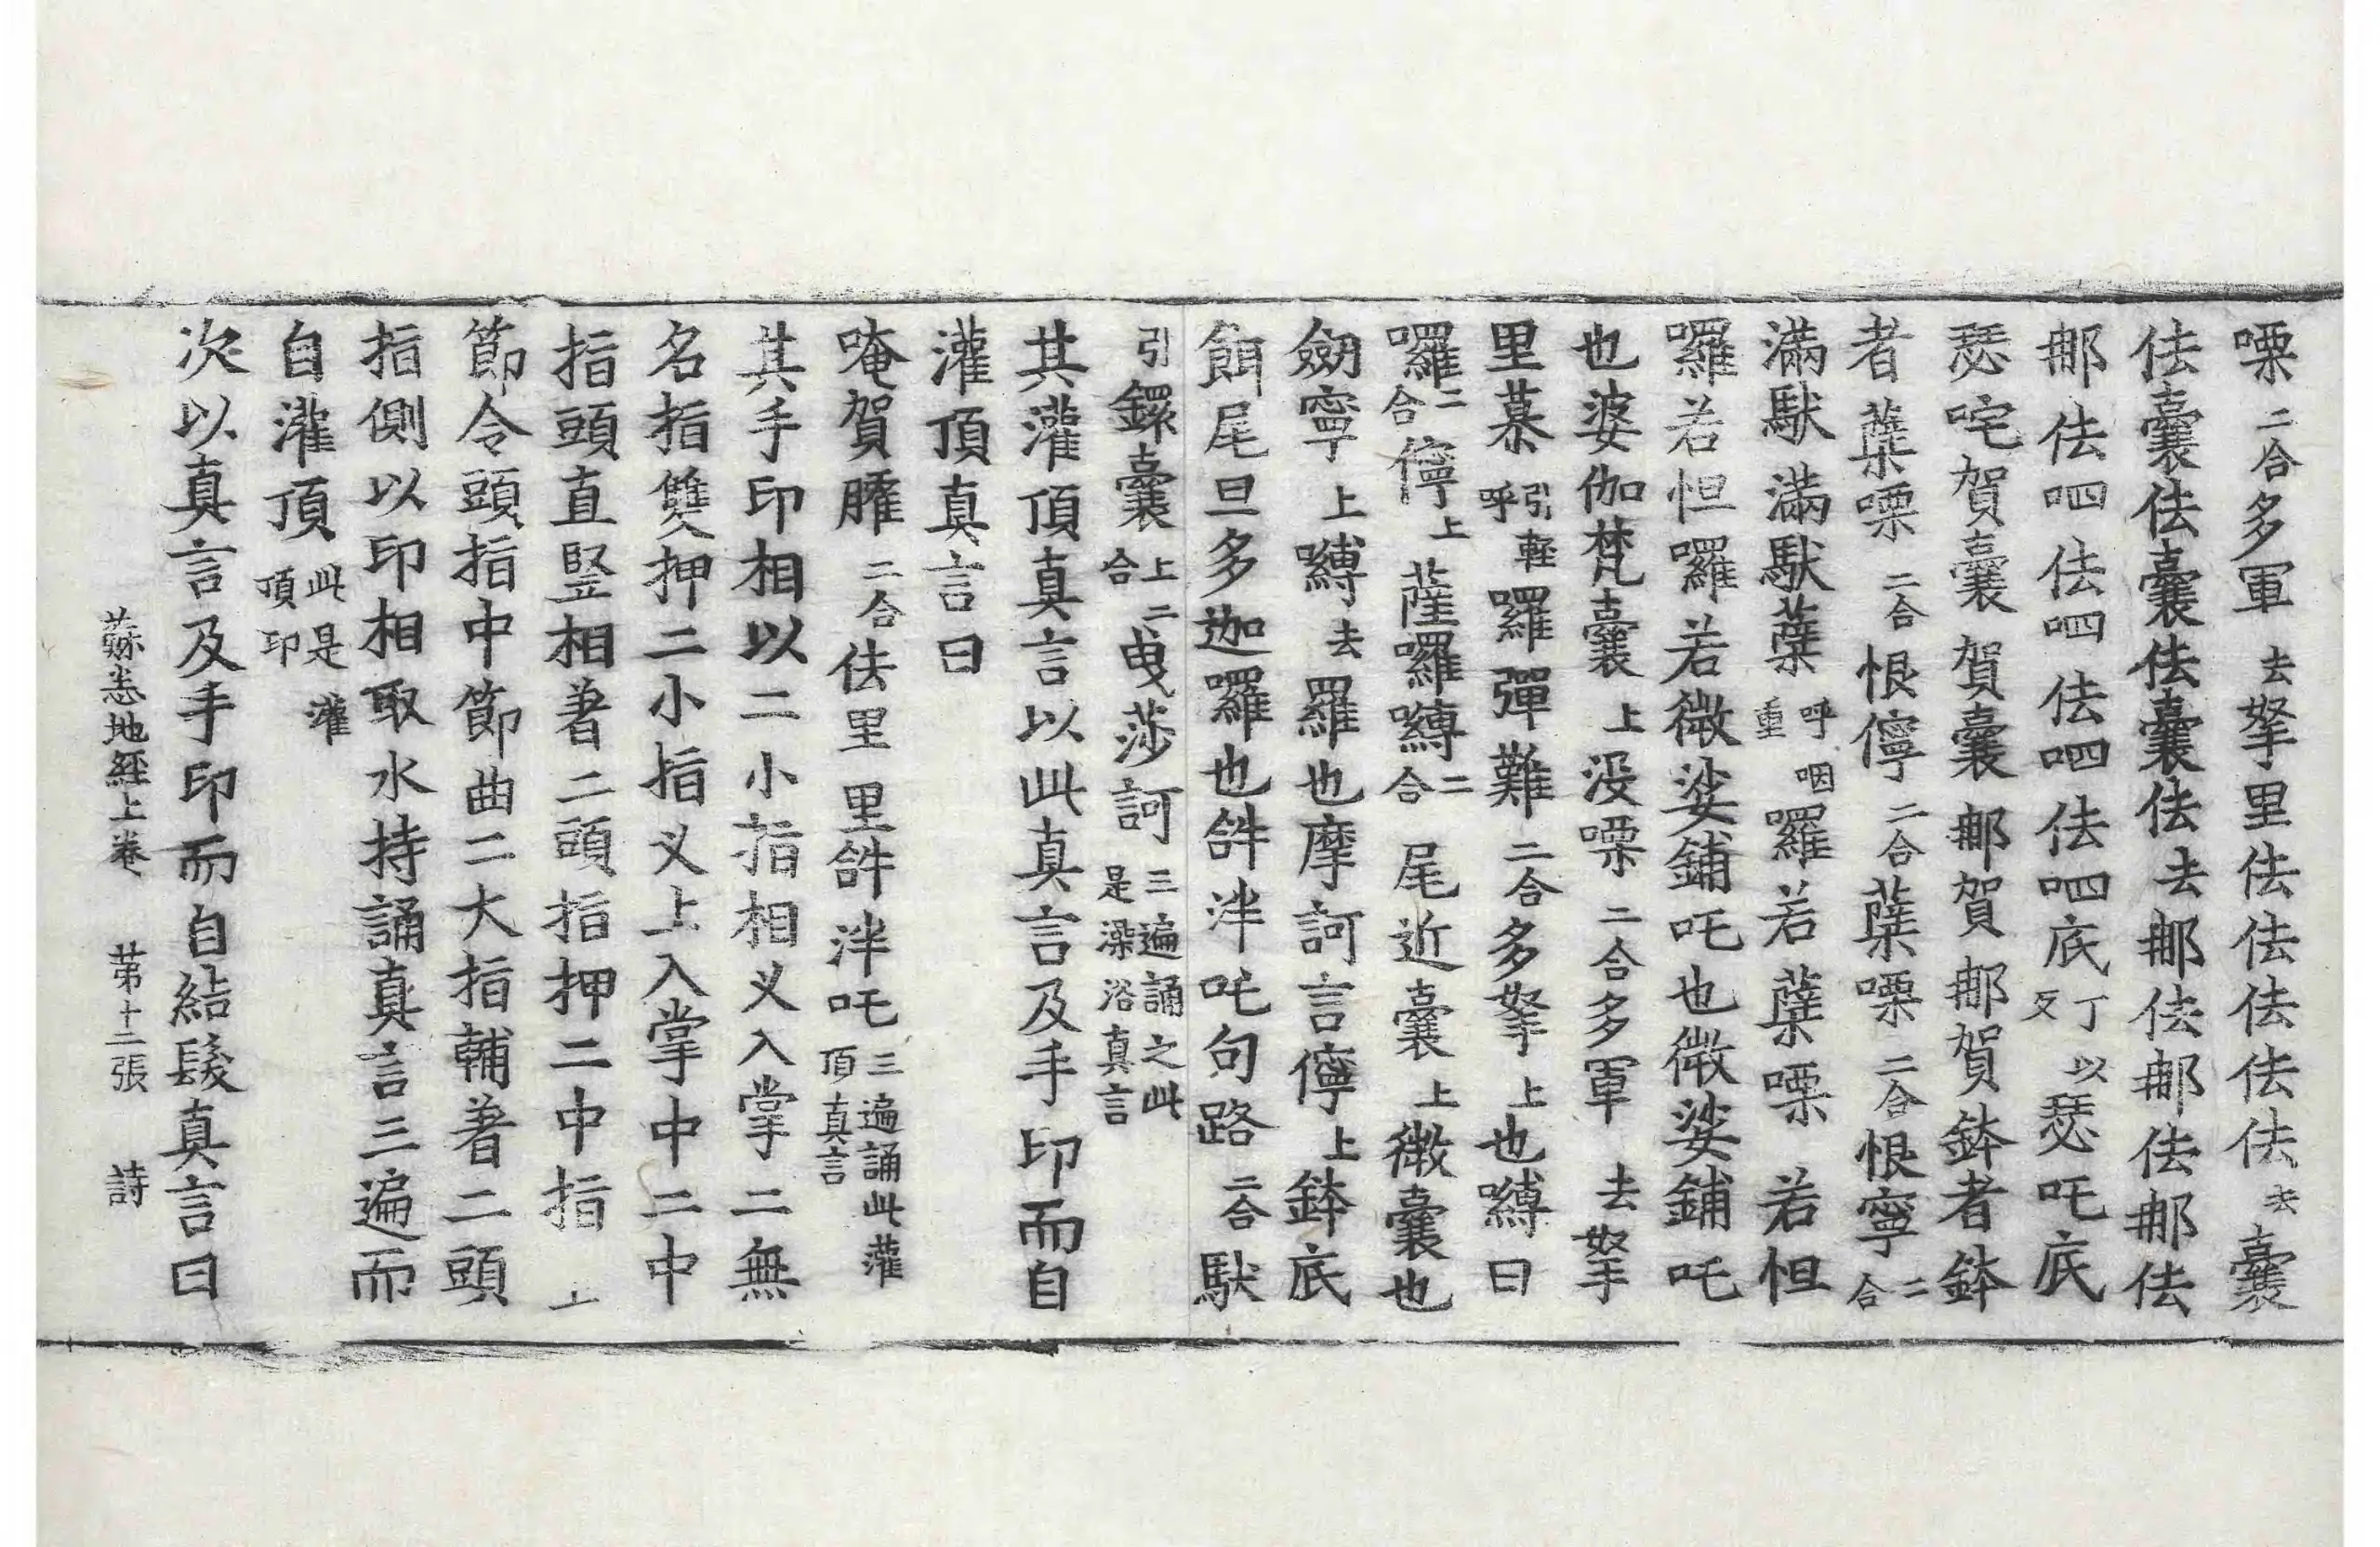 㗚二合多軍去拏里佉佉佉佉佉去囊
佉囊佉囊佉囊佉去那佉那佉那佉
那佉呬佉呬佉呬佉呬底丁以反瑟吒底
瑟咤賀囊賀囊那賀那賀鉢者鉢
者蘖㗚二合恨儜二合蘖㗚二合恨寧二合
滿馱滿馱蘖呼咽重羅若蘖㗚若怛
羅若怛羅若微娑鋪吒也微娑鋪吒
也婆伽梵囊上没㗚二合多軍去拏
里慕引輕呼羅彈難二合多拏上也嚩曰
囉二合儜上薩囉嚩二合尾近囊上微囊也
劒寧上嚩去羅也摩訶言儜上鉢底
餌尾旦多迦囉也𤙖泮吒句路二合馱
引鏍囊上二合曳莎訶三遍誦之此是澡浴真言
其灌頂真言以此真言及手印而自
灌頂真言曰
唵賀㬶二合佉里里𤙖泮吒三遍誦此灌頂真言
其手印相以二小指相叉入掌二無
名指雙押二小指叉上入掌中二中
指頭直竪相著二頭指押二中指上
節令頭指中節曲二大指輔著二頭
指側以印相取水持誦真言三遍而
自灌頂此是灌頂印
次以真言及手印而自結髮真言曰
蘇悉地經上卷 第十二張 詩